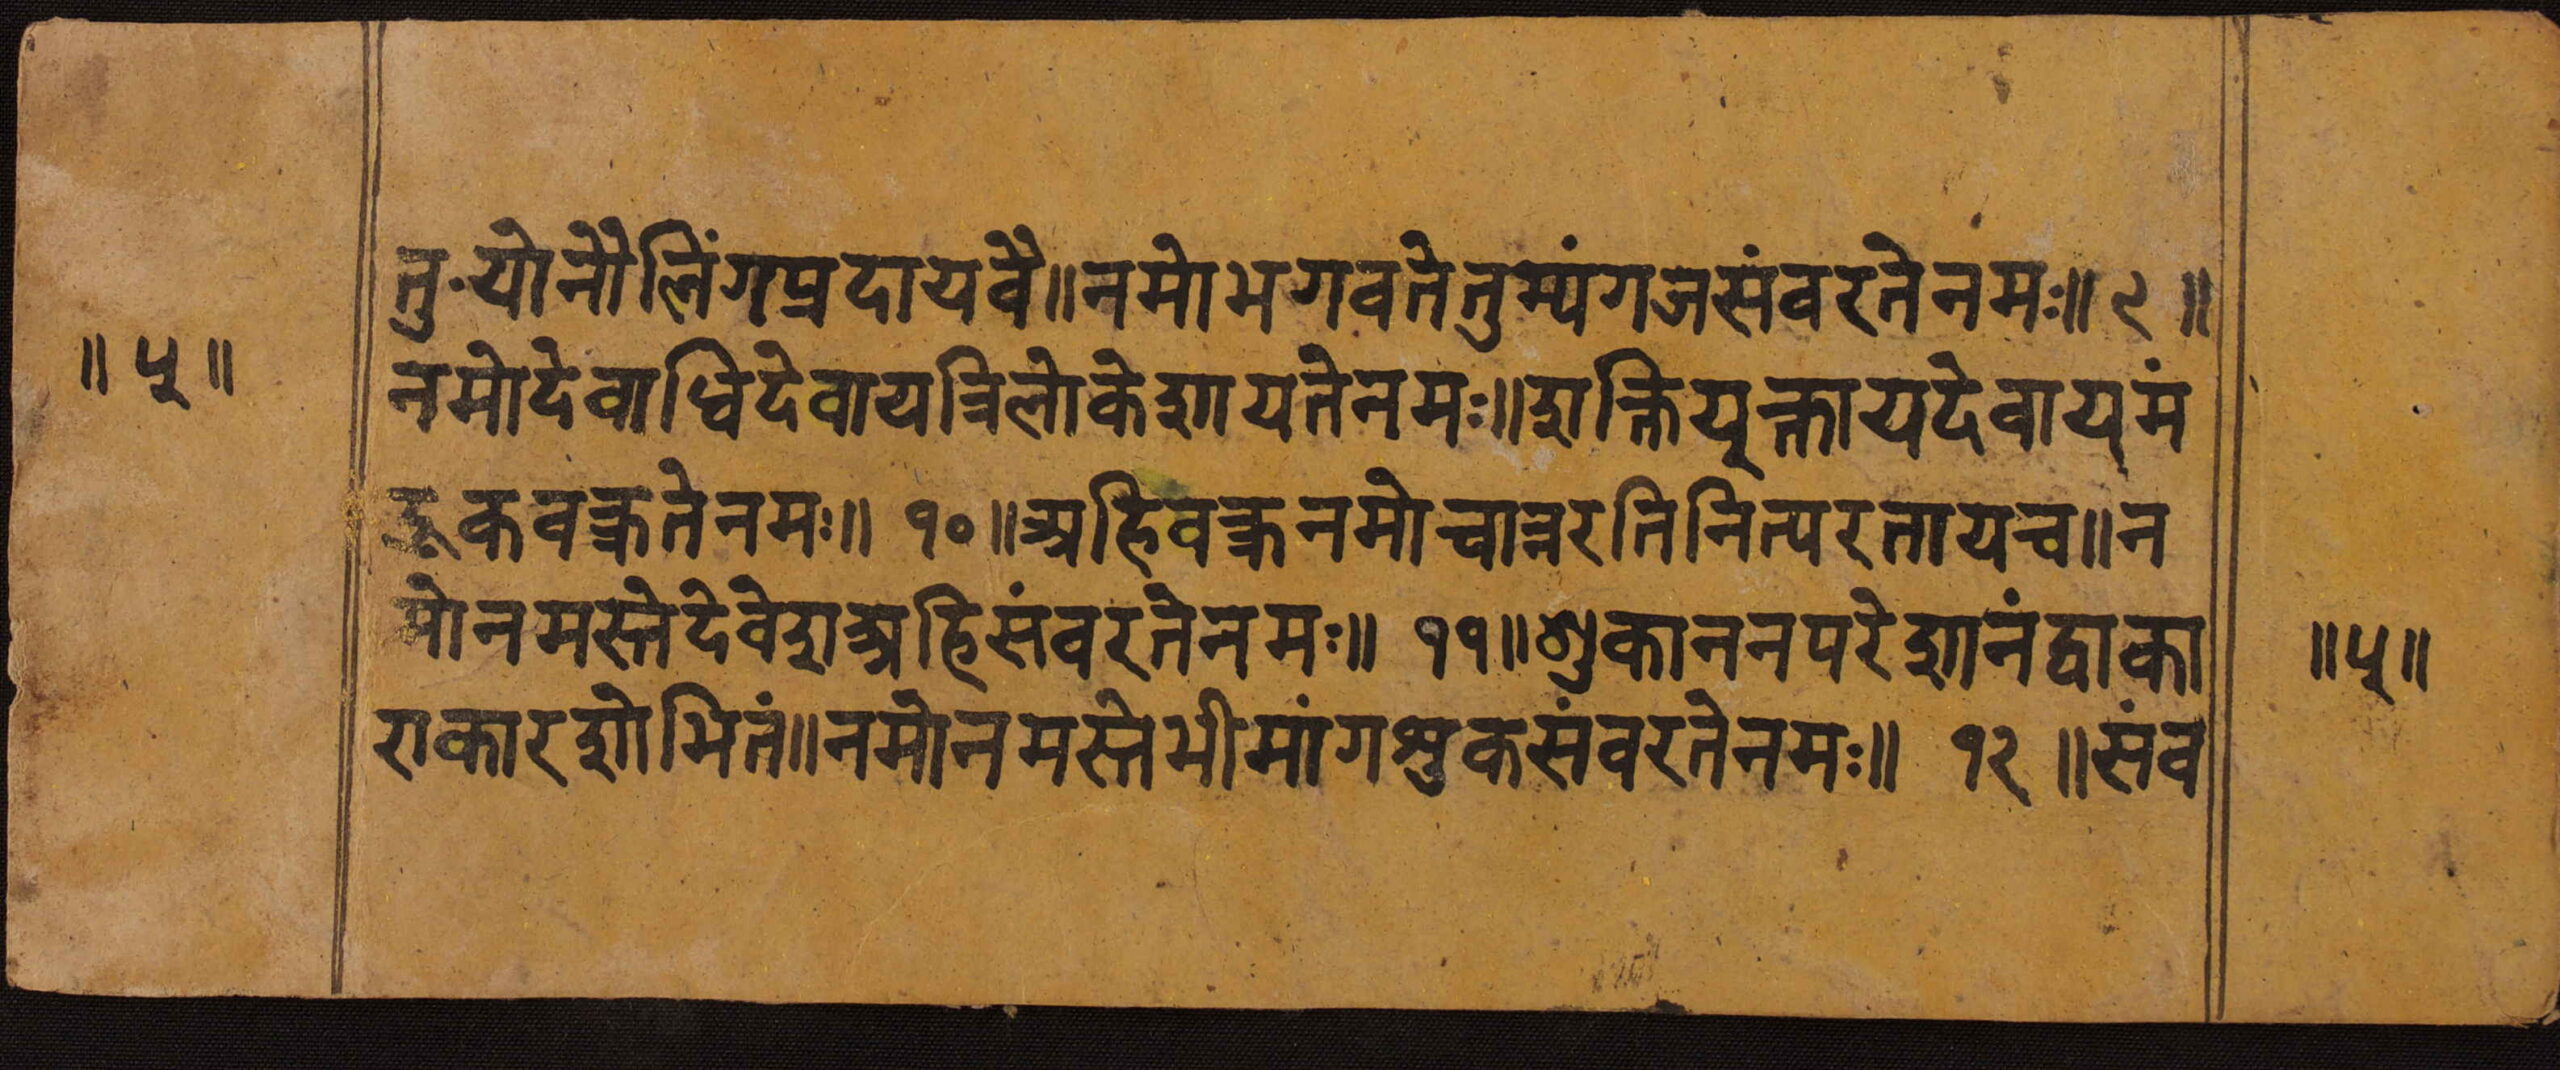 तु योनौलिंगप्रदायवै॥नमोभगवतेतुभ्यंगजसंवरतेनमः॥९॥
॥५॥
नमोदेवाधिदेवायत्रिलोकेशायतेनमः॥शक्तियूक्तायदेवायमं
डूकवक्त्रतेनमः॥१०॥अहिवक्त्रनमोच्चान्नरतिनित्यरतायच॥न
मोनमस्तेदेवेशअहिसंवरतेनमः॥११॥शुकाननपरेशानंद्वाका
॥५॥
राकारशोभितं॥नमोनमस्तेभीमांगशुकसंवरतेनमः॥१२॥संव